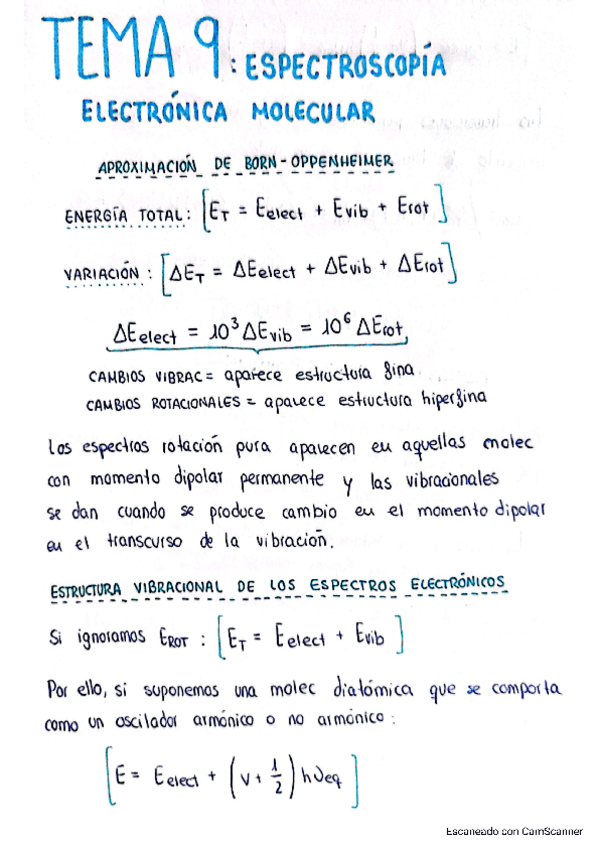 TEMA 9: ESPECTROSCOPÍA
ELECTRÓNICA MOLECULAR
APROXIMACIÓN DE BORN-OPPENHEIMER
ENERGÍA TOTAL: [E_T = E_elect + E_vib + E_rot]
VARIACIÓN: [ΔE_T = ΔE_elect + ΔE_vib + ΔE_rot]
ΔE_elect = 10³ ΔE_vib = 10⁶ ΔE_rot,
CAMBIOS VIBRAC = aparece estructura fina.
CAMBIOS ROTACIONALES = aparece estructura hiperfina
Los espectros rotación pura aparecen en aquellas molec
con momento dipolar permanente y las vibracionales
se dan cuando se produce cambio en el momento dipolar
en el transcurso de la vibración.
ESTRUCTURA VIBRACIONAL DE LOS ESPECTROS ELECTRÓNICOS
Si ignoramos E_ROT : [E_T = E_elect + E_vib]
Por ello, si suponemos una molec diatómica que se comporta
como un oscilador armónico o no armónico:
[E = E_elect + (v + 1/2) hν_eq]
Escaneado con CamScanner